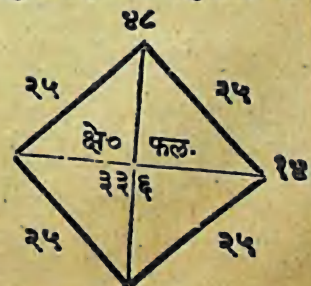 ४८
२५ २५
क्षे० फल.
३३६ १४
२५ २५